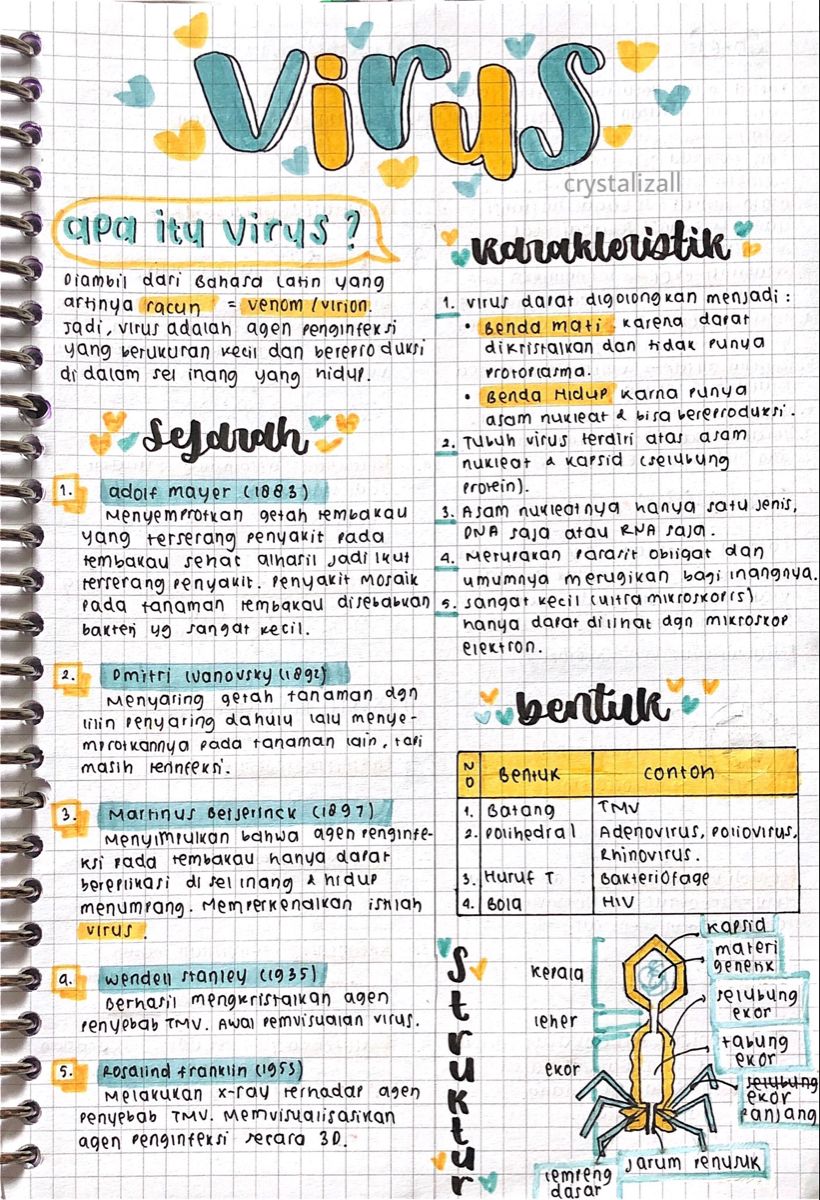 virus
crystalizall
apa itu virus?
Diambil dari Bahasa Latin yang
artinya racun = venom/virion.
Jadi, virus adalah agen penginfeksi
yang berukuran kecil dan bereproduksi
di dalam sel inang yang hidup.
Sejarah
1. adolf mayer (1883)
Menyemprotkan getah tembakau
yang terserang penyakit pada
tembakau sehat alhasil jadi ikut
terserang penyakit. Penyakit Mosaik
pada tanaman tembakau disebabkan
bakteri yg sangat kecil.
2. Dmitri Ivanovsky (1892)
Menyaring getah tanaman dgn
lilin penyaring dahulu lalu menye-
mprotkannya pada tanaman lain, tapi
masih terinfeksi.
3. Martinus Beijerinck (1897)
Menyimpulkan bahwa agen penginfe-
ksi pada tembakau hanya dapat
bereplikasi di sel inang & hidup
menumpang. Memperkenalkan istilah
virus.
4. Wendell Stanley (1935)
Berhasil mengkristalkan agen
penyebab TMV. Awal pemvisualan virus.
5. Rosalind Franklin (1953)
Melakukan x-ray terhadap agen
penyebab TMV. Memvisualisasikan
agen penginfeksi secara 3D.
karakteristik
1. Virus dapat digolongkan menjadi :
• Benda mati karena dapat
dikristalkan dan tidak punya
protoplasma.
• Benda Hidup karna punya
asam nukleat & bisa bereproduksi.
2. Tubuh virus terdiri atas asam
nukleat & kapsid (selubung
protein).
3. Asam nukleatnya hanya satu jenis,
DNA saja atau RNA saja.
4. Merupakan parasit obligat dan
umumnya merugikan bagi inangnya.
5. Sangat kecil (ultra mikroskopis)
hanya dapat dilihat dgn mikroskop
elektron.
bentuk
NO Bentuk Contoh
1. Batang TMV
2. Polihedral Adenovirus, Poliovirus,
Rhinovirus.
3. Huruf T Bakteriofage
4. Bola HIV
Struktur
kepala
leher
ekor
kapsid
materi
genetik
selubung
ekor
tabung
ekor
selubung
ekor
panjang
jarum penusuk
lempeng
dasar